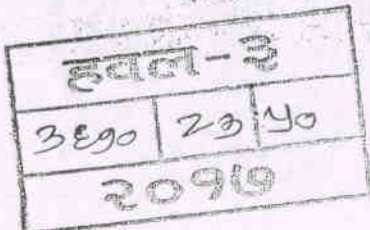 हवल-३
३६१० २३ ५०
२०१७